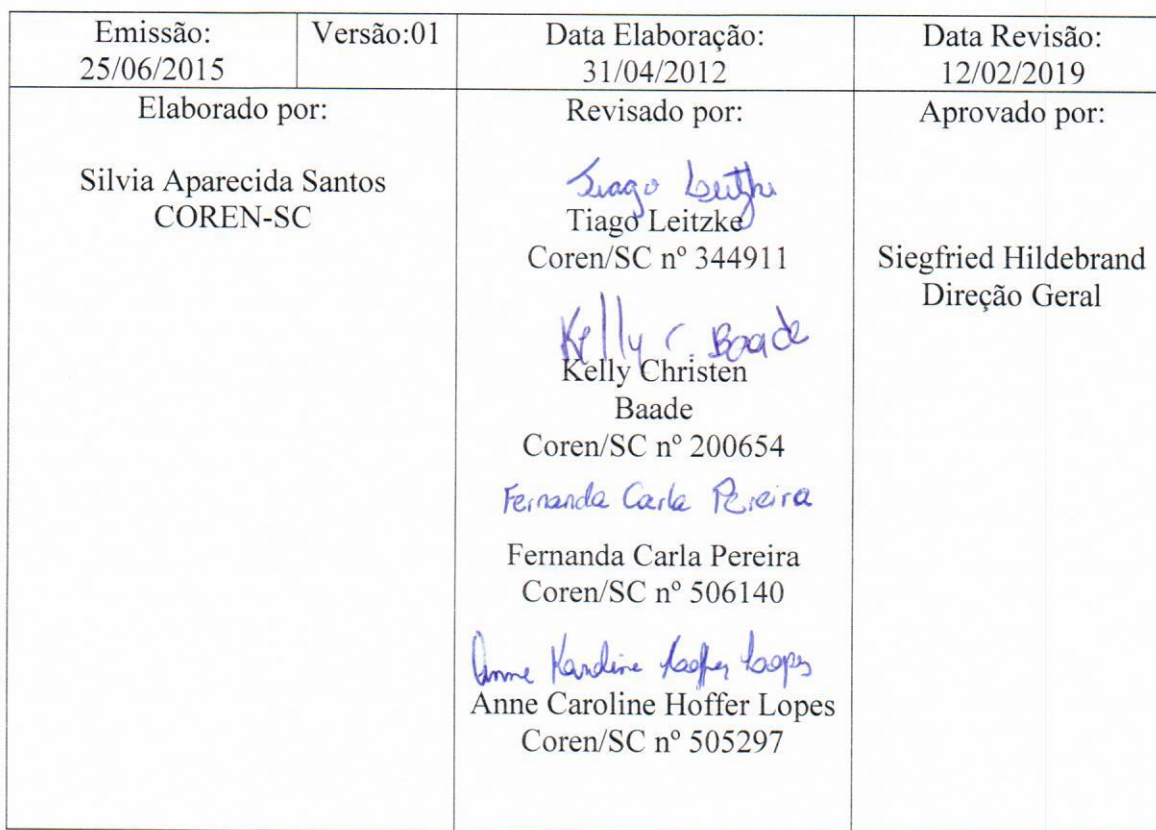 Emissão:
25/06/2015
Versão:01
Data Elaboração:
31/04/2012
Data Revisão:
12/02/2019
Elaborado por:
Silvia Aparecida Santos
COREN-SC
Revisado por:
Tiago Leitzke
Coren/SC nº 344911
Kelly C. Baade
Kelly Christen
Baade
Coren/SC nº 200654
Fernanda Carla Pereira
Fernanda Carla Pereira
Coren/SC nº 506140
Anne Caroline Hoffer Lopes
Coren/SC nº 505297
Aprovado por:
Siegfried Hildebrand
Direção Geral